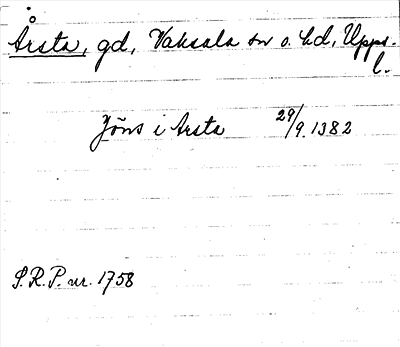 Årsta, gd, Vaksala sn o. hd, Upps.
l.
Jöns i Arsta 29/9.1382
S.R.P. nr. 1758